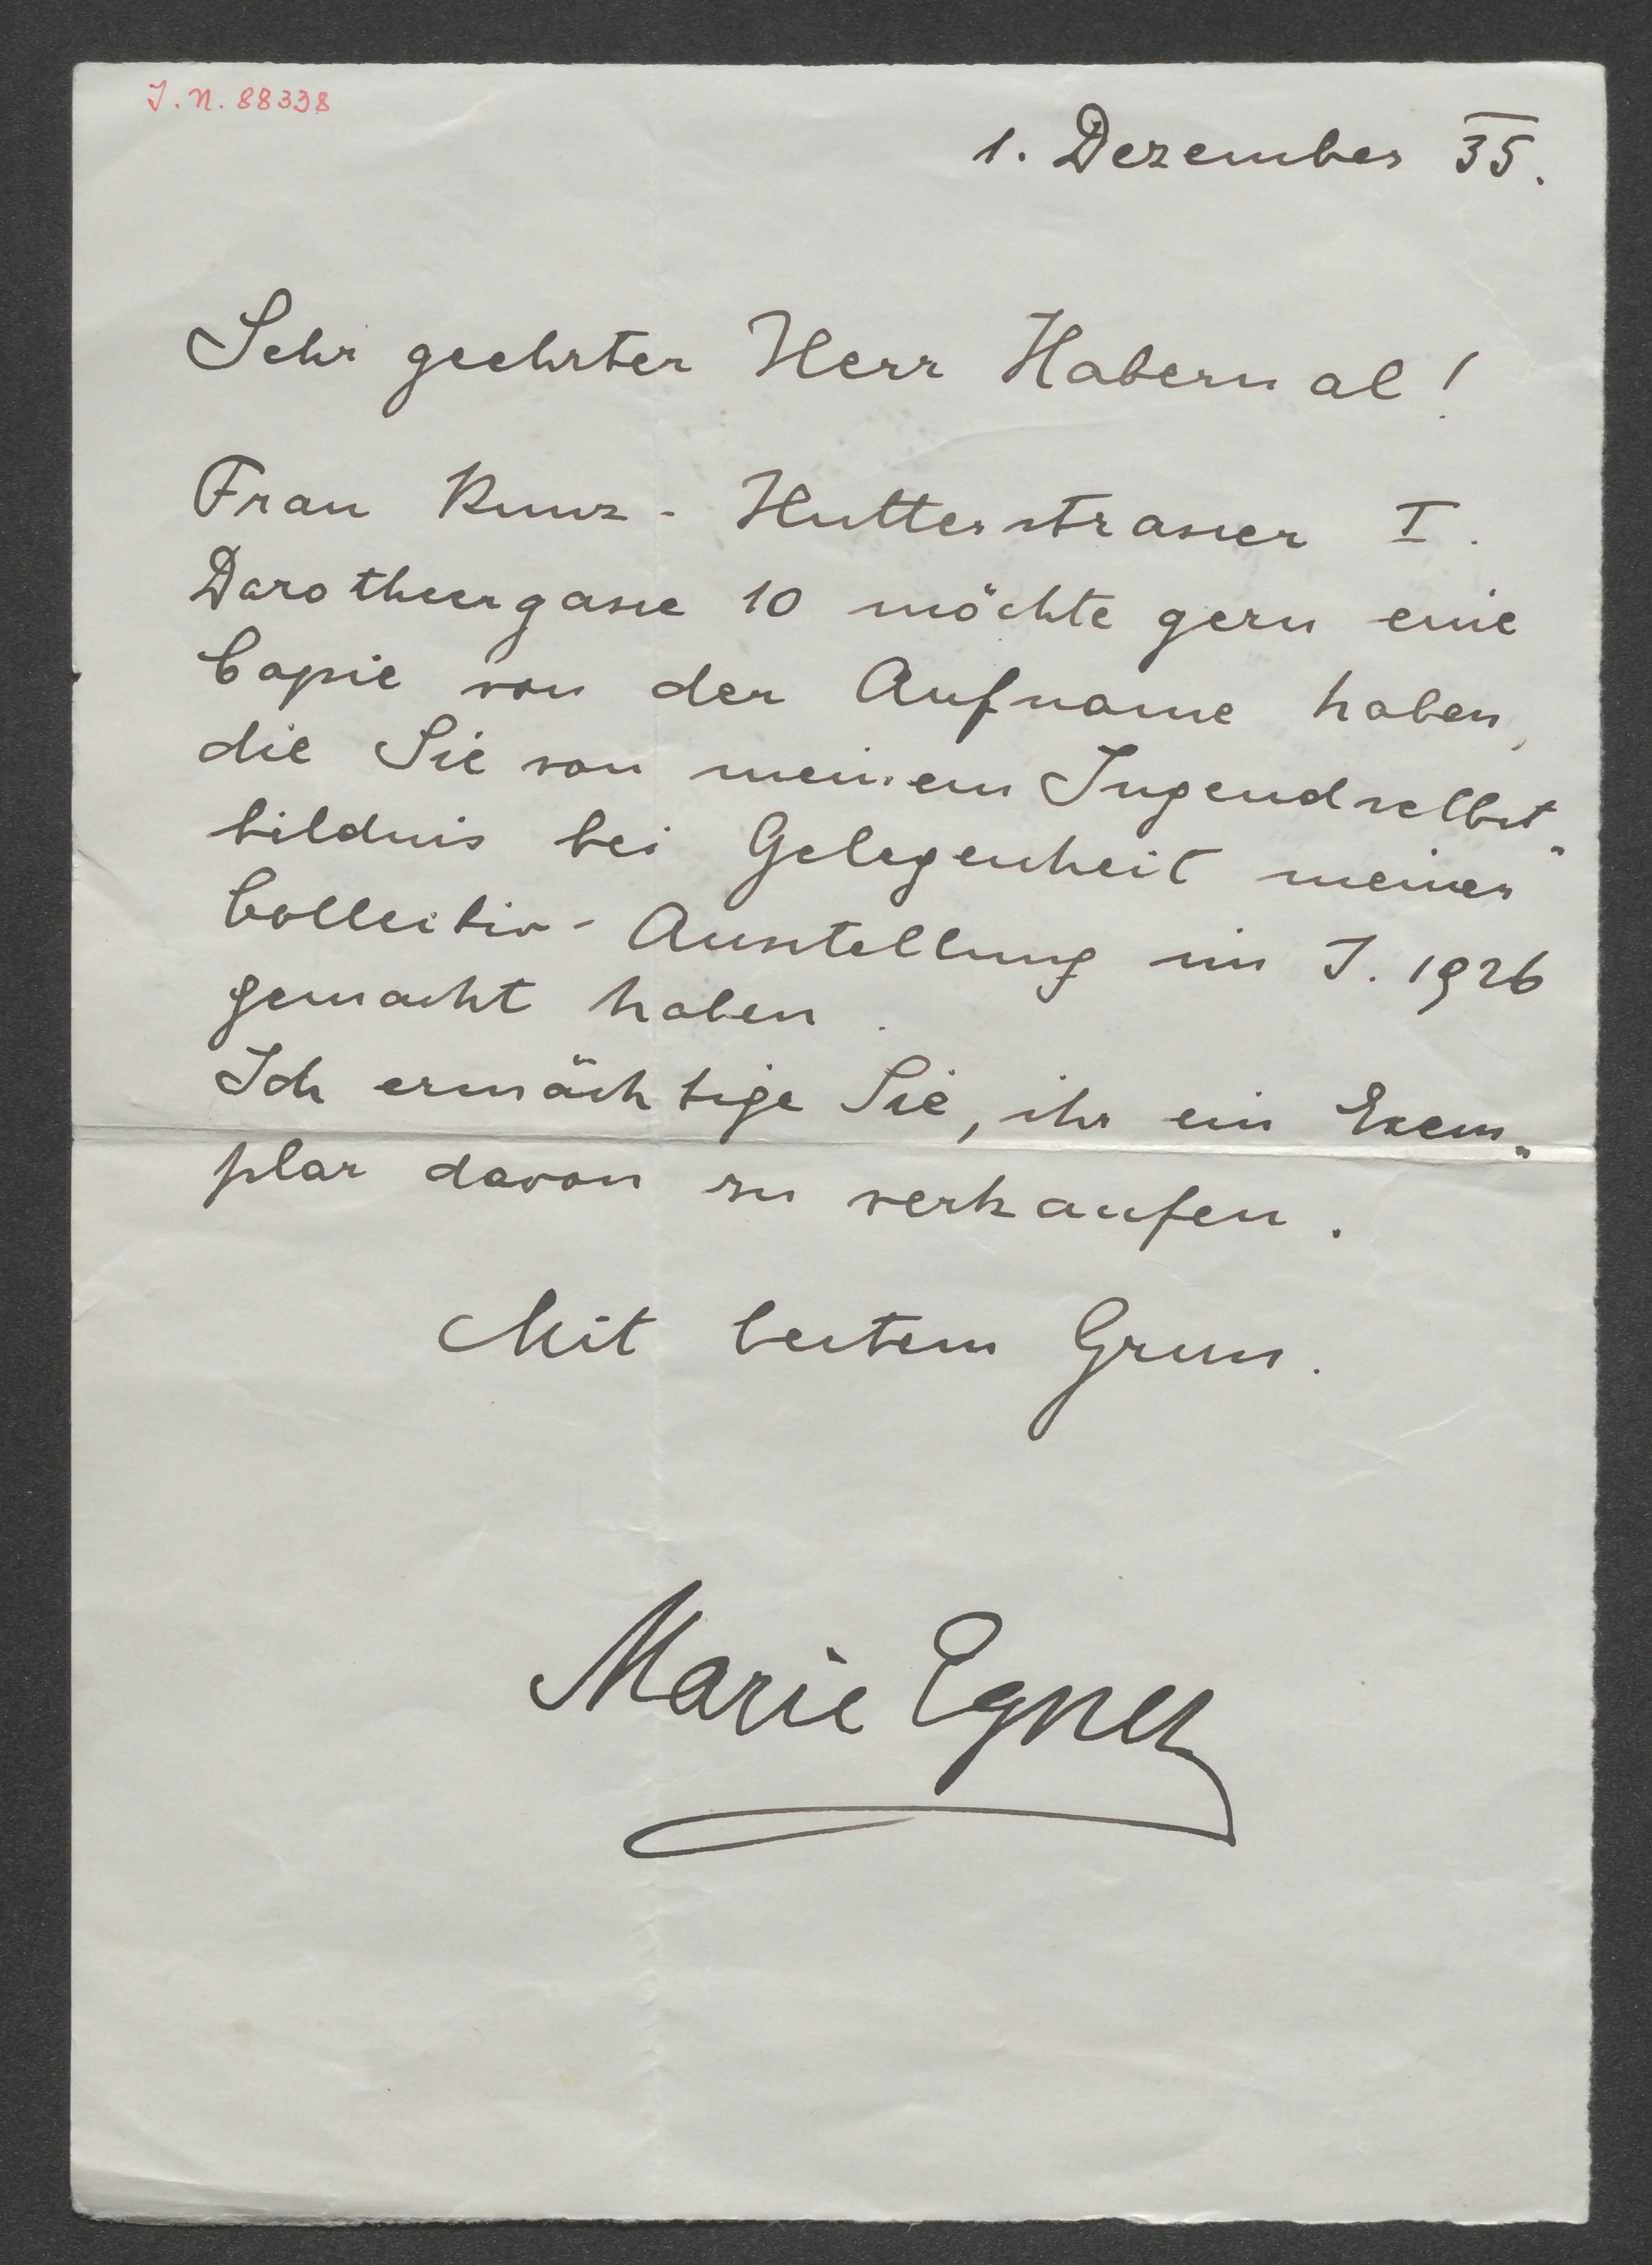 J. N. 88338
1. Dezember 35.
Sehr geehrter Herr Habernal!
Frau Kunz-Hutterstrasser I.
Dorotheergasse 10 möchte gern eine
Copie von der Aufname haben,
die Sie von meinem Jugendselbst-
bildnis bei Gelegenheit meiner
Collectiv-Ausstellung im J. 1926
gemacht haben.
Ich ermächtige Sie, ihr ein Exem-
plar davon zu verkaufen.
Mit bestem Gruss.
Marie Egner